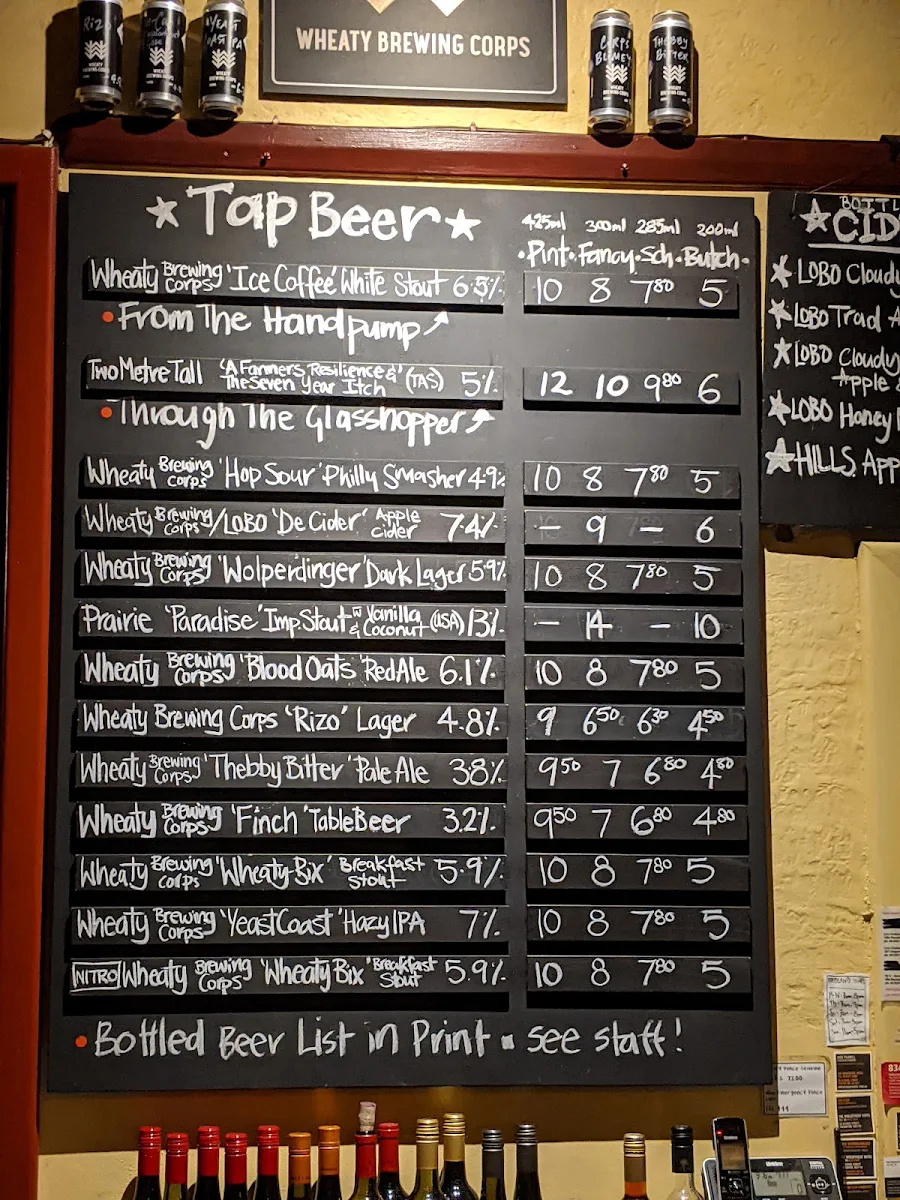 Rizo
WHEATY BREWING CORPS
YEAST COAST IPA
WHEATY BREWING CORPS
WHEATY BREWING CORPS
THEBBY BITTER
WHEATY BREWING CORPS
★ Tap Beer ★
425ml 300ml 285ml 200ml
• Pint • Fancy • Sch • Butch •
Wheaty Brewing Corps 'Ice Coffee' White Stout 6.5% 10 8 7.80 5
• From The Handpump ↗
Two Metre Tall 'A Farmers Resilience & The Seven Year Itch' (TAS) 5% 12 10 9.80 6
• Through The Glasshopper ↗
Wheaty Brewing Corps 'Hop Sour' Philly Smasher 4.9% 10 8 7.80 5
Wheaty Brewing Corps/LOBO 'De Cider' Apple cider 7.4% – 9 – 6
Wheaty Brewing Corps 'Wolperdinger' Dark Lager 5.9% 10 8 7.80 5
Prairie 'Paradise' Imp Stout w Vanilla & Coconut (USA) 13% – 14 – 10
Wheaty Brewing Corps 'Blood Oats' Red Ale 6.1% 10 8 7.80 5
Wheaty Brewing Corps 'Rizo' Lager 4.8% 9 6.50 6.30 4.50
Wheaty Brewing Corps 'Thebby Bitter' Pale Ale 3.8% 9.50 7 6.80 4.80
Wheaty Brewing Corps 'Finch' Table Beer 3.2% 9.50 7 6.80 4.80
Wheaty Brewing Corps 'Wheaty-Bix' Breakfast Stout 5.9% 10 8 7.80 5
Wheaty Brewing Corps 'Yeast Coast' Hazy IPA 7% 10 8 7.80 5
NITRO Wheaty Brewing Corps 'Wheaty Bix' Breakfast Stout 5.9% 10 8 7.80 5
• Bottled Beer List in Print • see staff!
★ CID
★ LOBO Cloudy
★ LOBO Trad A
★ LOBO Cloudy
Apple &
★ LOBO Honey
★ HILLS App